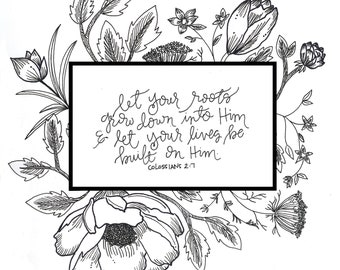 let your roots
grow down into Him
& let your lives be
built on Him
COLOSSIANS 2:7